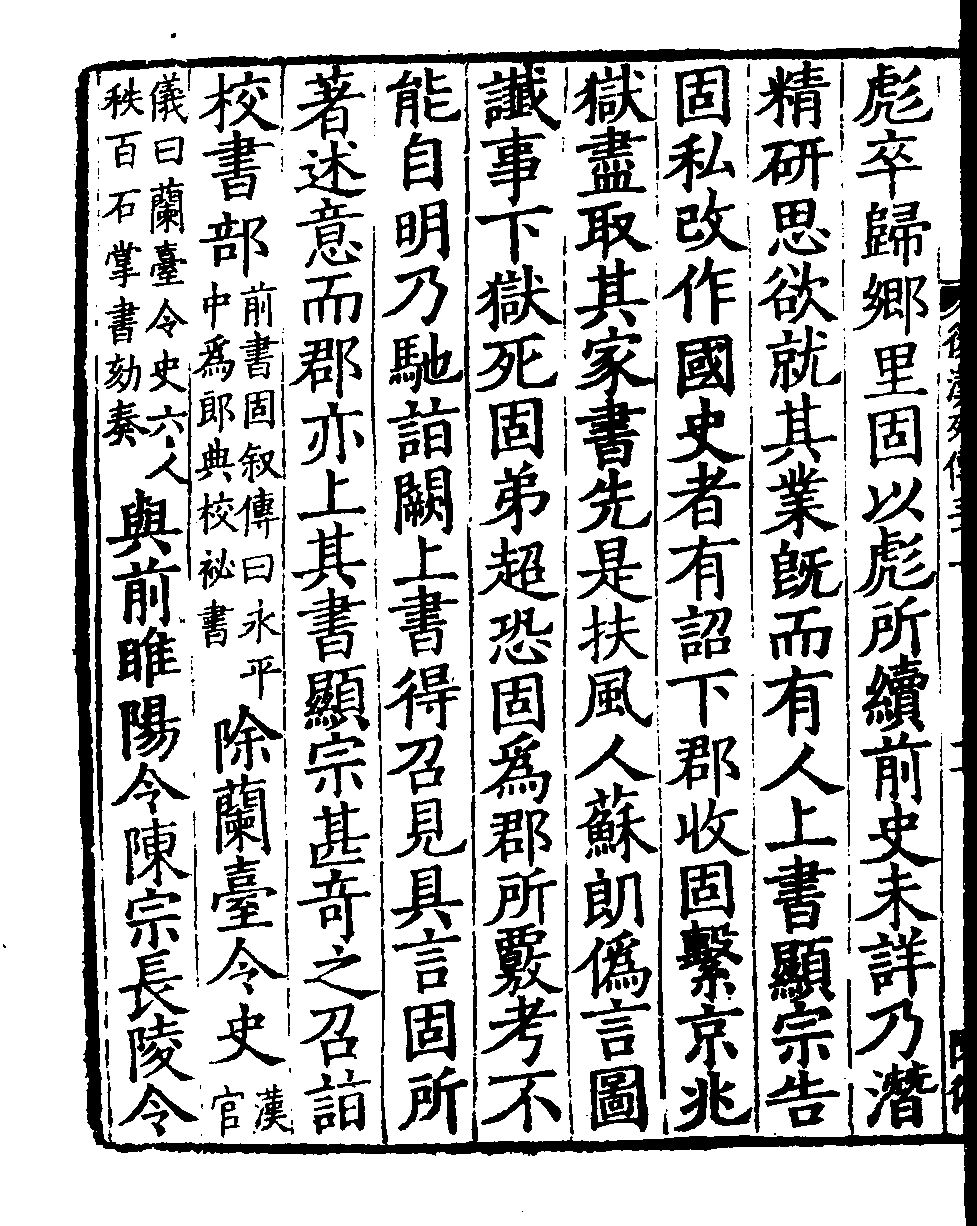 彪卒歸鄉里固以彪所續前史未詳乃潛
精研思欲就其業旣而有人上書顯宗告
固私改作國史者有詔下郡收固繫京兆
獄盡取其家書先是扶風人蘇朗僞言圖
讖事下獄死固弟超恐固爲郡所覈考不
能自明乃馳詣闕上書得召見具言固所
著述意而郡亦上其書顯宗甚奇之召詣
校書部前書固叙傳曰永平中爲郎典校祕書除蘭臺令史漢官
儀曰蘭臺令史六人秩百石掌書劾奏與前睢陽令陳宗長陵令